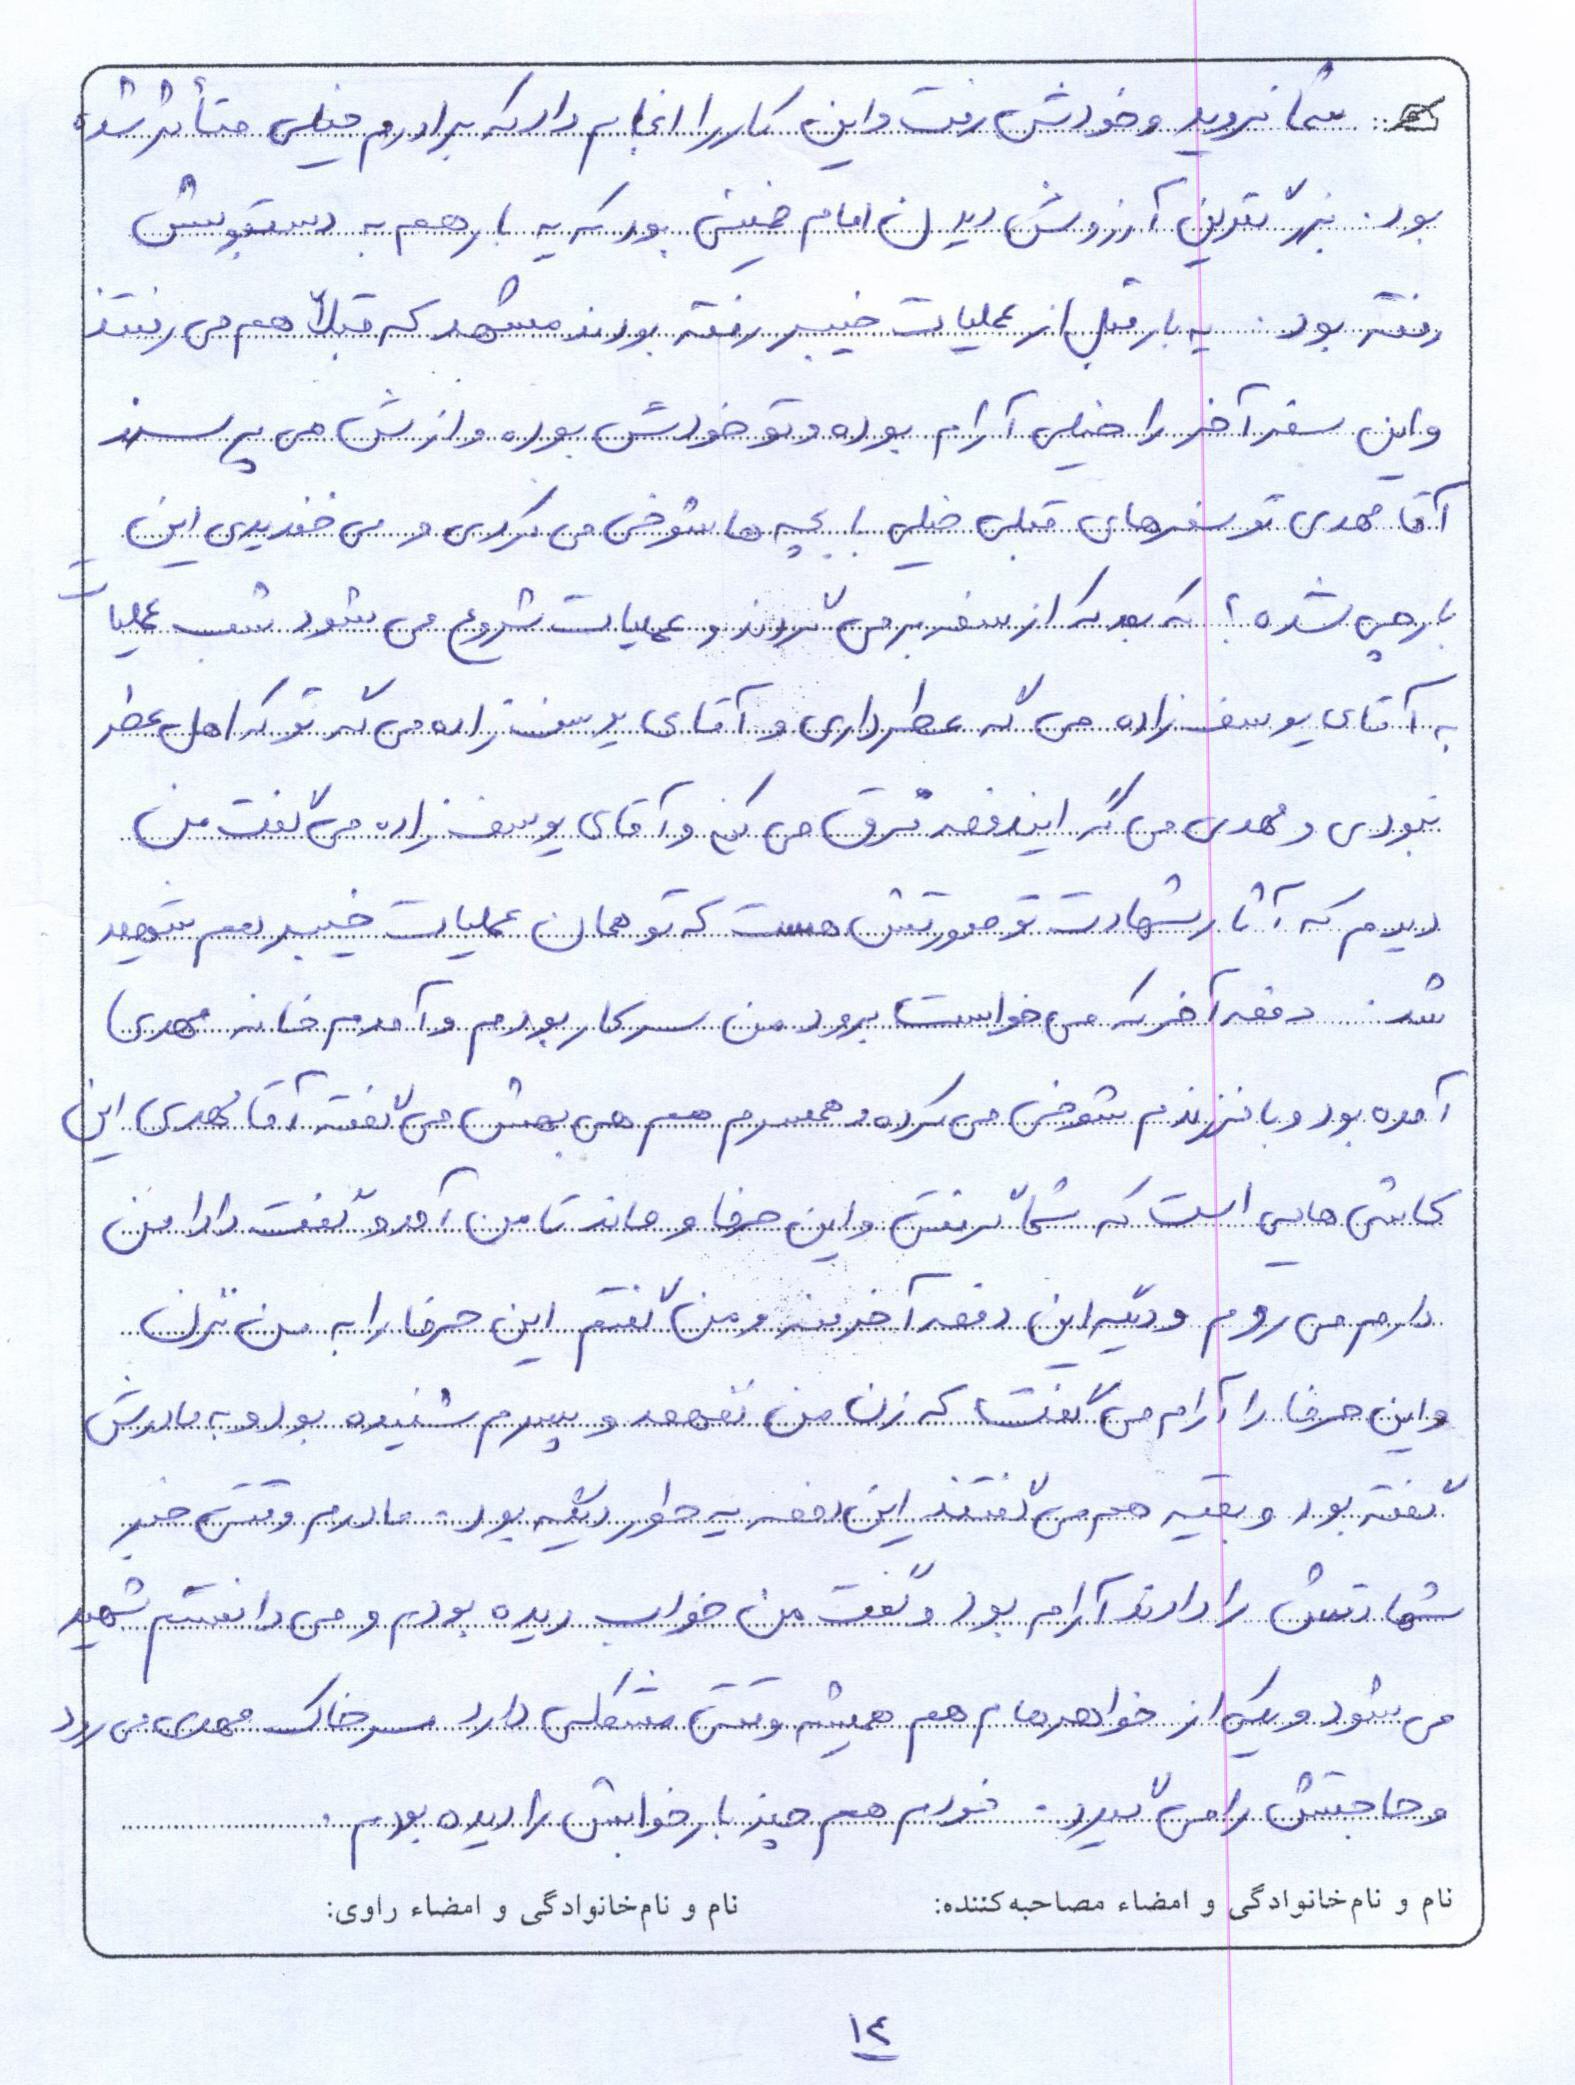 شما نروید و خودش رفت و این کار را انجام داد که برادرم خیلی متأثر شده
بود. بزرگترین آرزوش دیدن امام خمینی بود که یه بار هم به دستبوسش
رفته بود. یه بار قبل از عملیات خیبر رفته بودند مشهد که قبلاً هم می رفتند
و این سفر آخر را خیلی آرام بوده و تو خودش بوده و ازش می پرسند
آقا مهدی تو سفرهای قبلی خیلی با بچه ها شوخی می کردی و می خندیدی این
بار چی شده؟ که بعد که از سفر برمی گردند و عملیات شروع می شود شب عملیات
به آقای یوسف زاده می گه عطر داری و آقای یوسف زاده می گه تو که اهل عطر
نبودی و مهدی می گه ایندفعه فرق می کنه و آقای یوسف زاده می گفت من
دیدم که آثار شهادت تو صورتش هست که تو همان عملیات خیبر هم شهید
شد. دفعه آخر که می خواست برود من سر کار بودم و آمدم خانه مهدی
آمده بود و با فرزندم شوخی می کرده و همسرم هم هی بهش می گفته آقا مهدی این
کاشی هایی است که شما گرفتی و این حرفا و ماند تا من آمدم و گفت دادا من
دارم می روم و دیگه این دفعه آخرمنه و من گفتم این حرفا را به من نزن
و این حرفا را آرام می گفت که زن من نفهمد و پسرم شنیده بود و به مادرش
گفته بود و بقیه هم می گفتند این دفعه یه جور دیگه بود. مادرم وقتی خبر
شهادتش را دادند آرام بود و گفت من خواب دیده بودم و می دانستم شهید
می شود و یکی از خواهرهام هم همیشه وقتی مشکلی دارد سر خاک مهدی می رود
و حاجتش را می گیرد. خودم هم چند بار خوابش را دیده بودم.
نام و نام‌خانوادگی و امضاء مصاحبه‌کننده: نام و نام‌خانوادگی و امضاء راوی:
۱۴